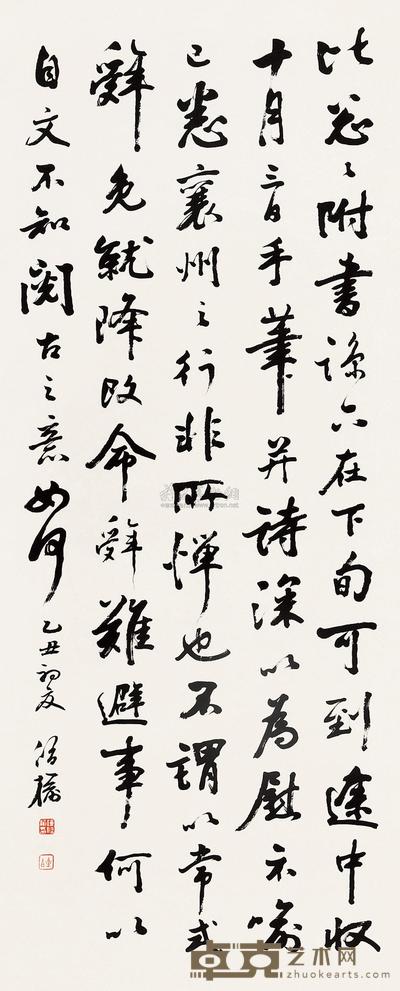 比怱〻附書諒亦在下旬可到途中收
十月三日手筆并詩深以為慰示喻
已悉襄州之行非所憚也不謂以常式
辤免就降改命辤難避事何以
自文不知閱古之意如何
乙丑初夏
卓克艺术网
zhuokearts.com